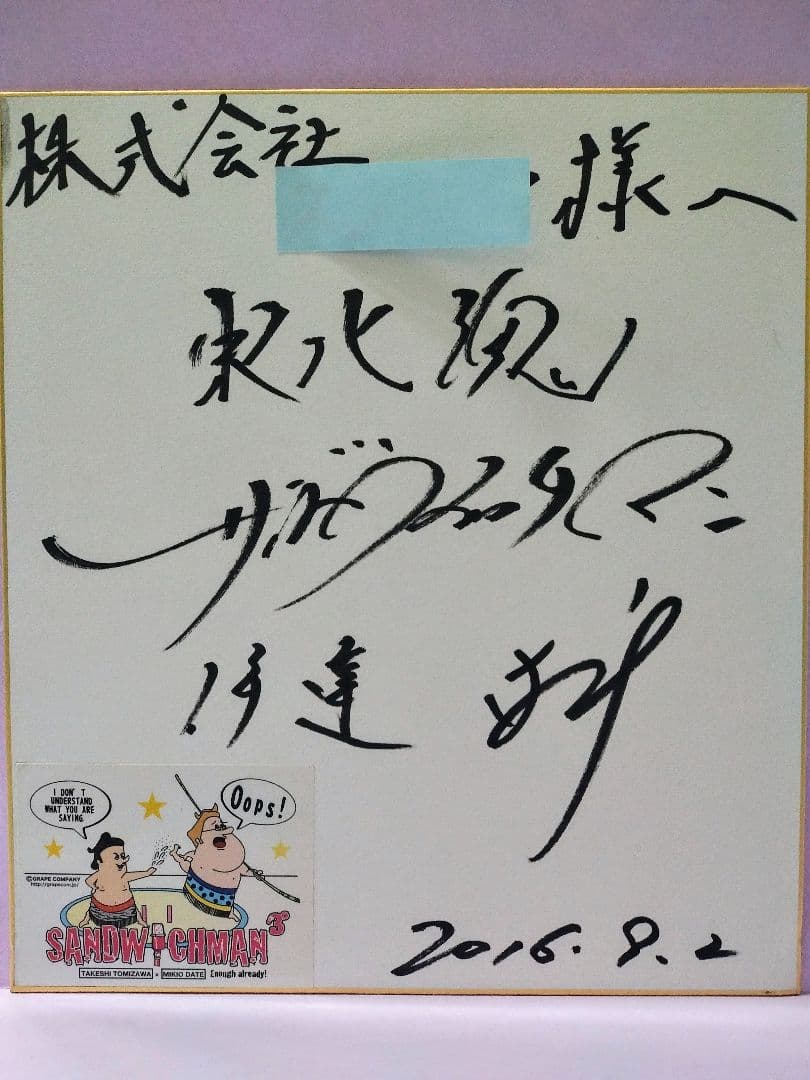 株式会社 様へ
東北魂
サンドウィッチマン
伊達
I DON'T
UNDERSTAND
WHAT YOU ARE
SAYING.
Oops!
©GRAPE COMPANY
http://grapecom.jp/
SANDWICHMAN3
TAKESHI TOMIZAWA × MIKIO DATE Enough already!
2016.9.2